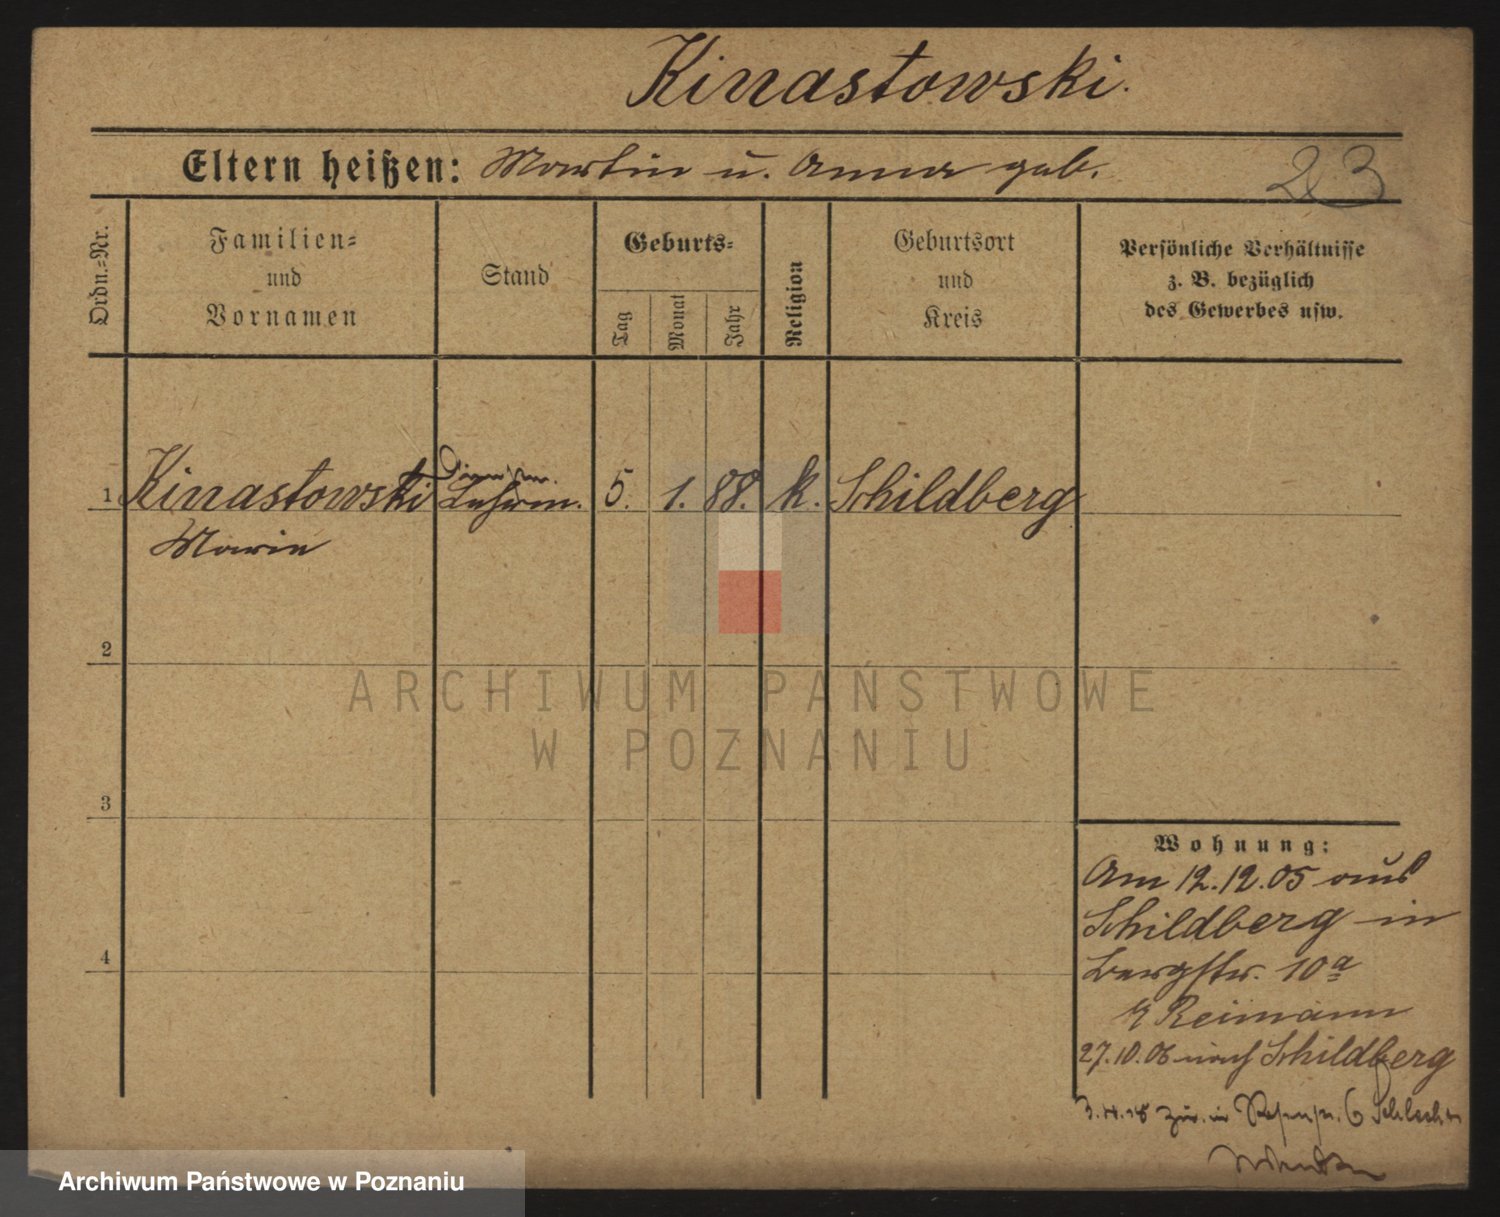 Kinastowski.
Eltern heißen: Martin u. Anna geb.
23
Ordn.=Nr.
Familien=
und
Vornamen
Stand
Geburts=
Tag
Monat
Jahr
Religion
Geburtsort
und
Kreis
Persönliche Verhältnisse
z. B. bezüglich
des Gewerbes usw.
1 Kinastowski 5. 1. 88. k. Schildberg
Marie
2
ARCHIWUM PAŃSTWOWE
W POZNANIU
3
4
Wohnung:
Am 12.12.05 aus
Schildberg in
Bergstr. 10a
Reimann
27.10.06 nach Schildberg
zur. in
Archiwum Państwowe w Poznaniu